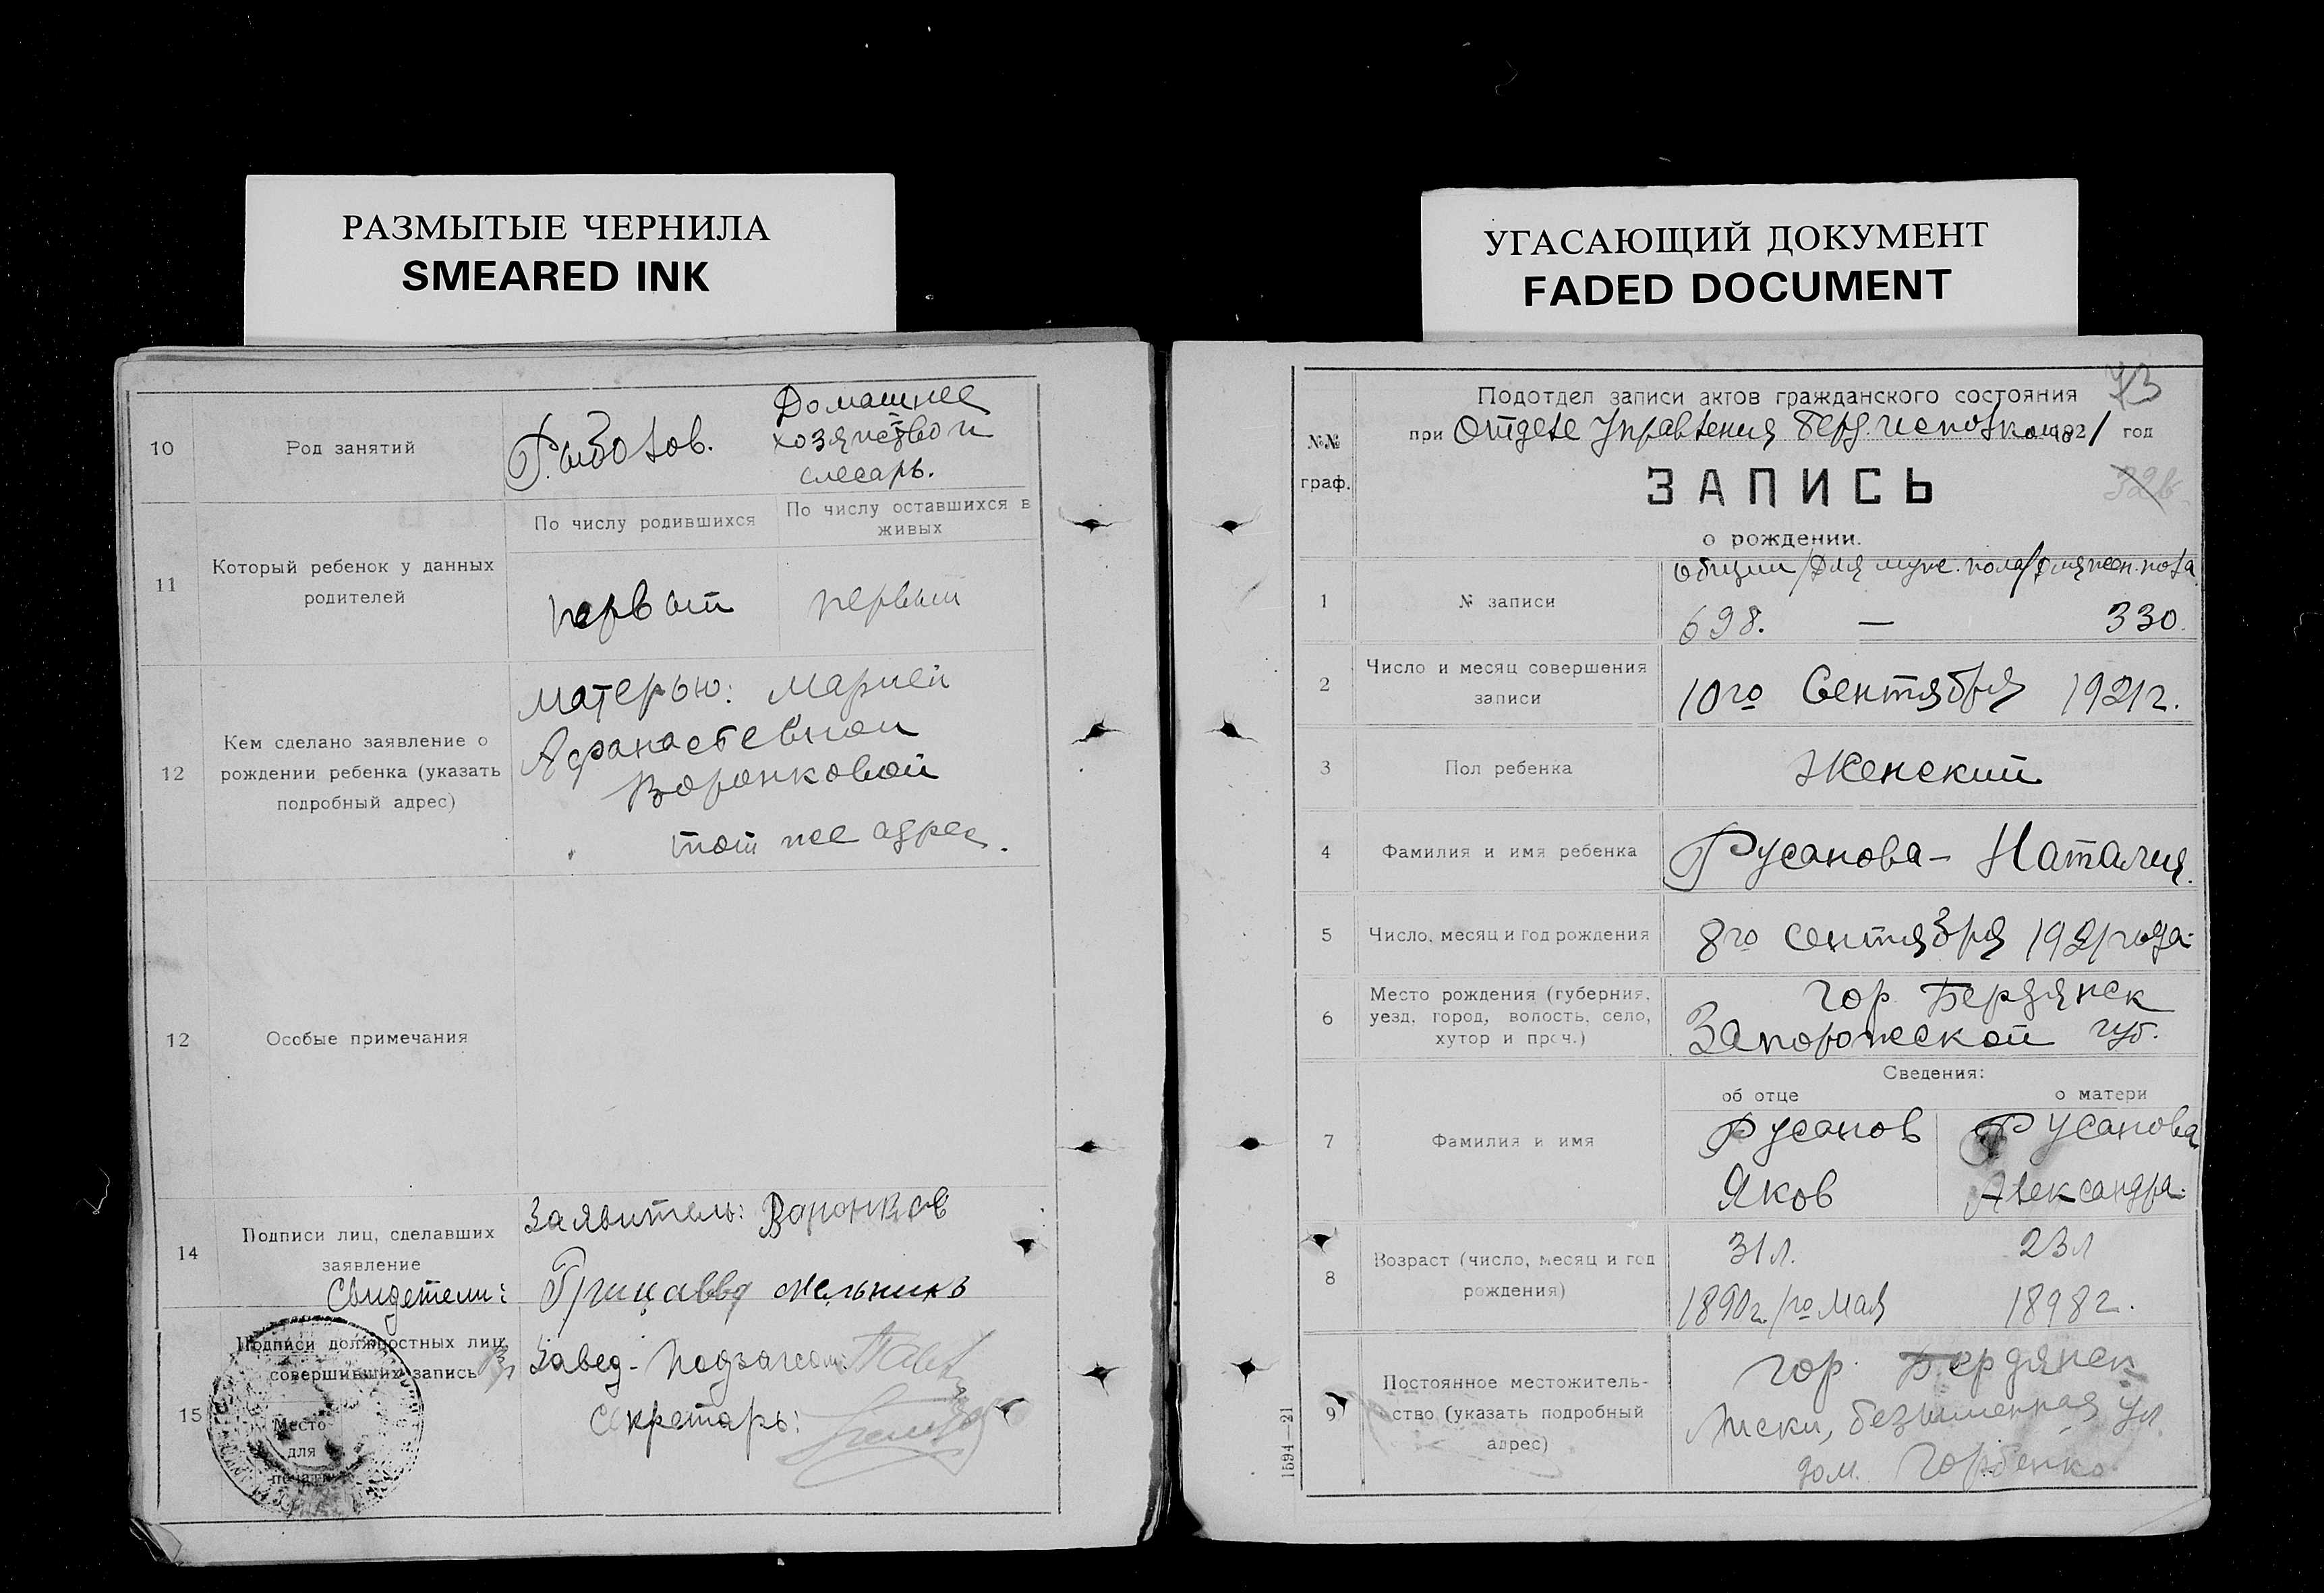 РАЗМЫТЫЕ ЧЕРНИЛА
SMEARED INK
10
Род занятий
Рыболов.
Домашнее
хозяйство и
слесарь.
11
Который ребенок у данных
родителей
По числу родившихся
По числу оставшихся в
живых
первый
первый
12
Кем сделано заявление о
рождении ребенка (указать
подробный адрес)
матерью: Марией
Афанасьевной
Воронковой
тот же адрес.
12
Особые примечания
14
Подписи лиц, сделавших
заявление
Свидетели:
Заявитель: Воронков
Мельникъ
15
Подписи должностных лиц,
совершивших запись
Место
для
печати
Завед. Подзагсом:
Секретарь:
УГАСАЮЩИЙ ДОКУМЕНТ
FADED DOCUMENT
73
№№
граф.
Подотдел записи актов гражданского состояния
при Отделе Управления Берд. Исполкома 1921 год
ЗАПИСЬ
о рождении.
1
№ записи
общий/для муж. пола/для жен. пола
698. — 330.
2
Число и месяц совершения
записи
10го Сентября 1921г.
3
Пол ребенка
Женский
4
Фамилия и имя ребенка
Русанова - Наталия.
5
Число, месяц и год рождения
8го сентября 1921 года.
6
Место рождения (губерния,
уезд, город, волость, село,
хутор и проч.)
гор. Бердянск
Запорожской губ.
Сведения:
об отце
о матери
7
Фамилия и имя
Русанов
Яков
Русанова
Александра.
8
Возраст (число, месяц и год
рождения)
31л.
1890г. 1го Мая
23л
1898г.
9
Постоянное местожитель-
ство (указать подробный
адрес)
гор. Бердянск
Лиски, безыменная ул.
дом. Горбенко
1594—21